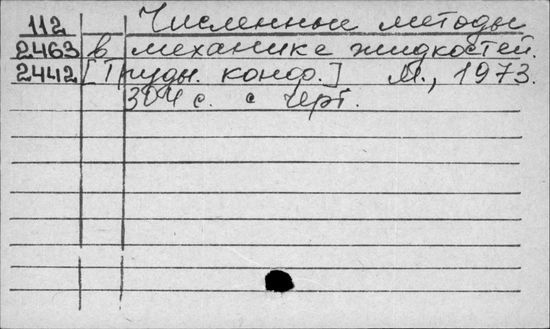 112 Численные методы
2463 в механике жидкостей.
2442 [Труды. конф.] М., 1973.
304 с. с черт.